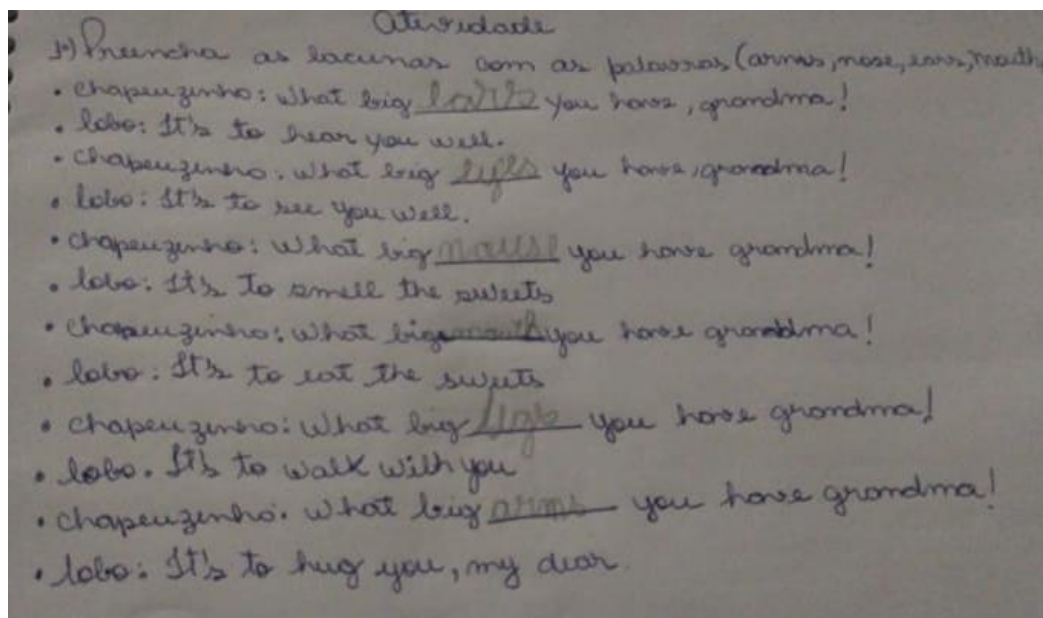 Atividade
1º) Preencha as lacunas com as palavras (arms, nose, ears, mouth,
• Chapeuzinho: What big ears you have, grandma!
• lobo: It's to hear you well.
• Chapeuzinho: What big eyes you have, grandma!
• lobo: It's to see you well.
• Chapeuzinho: What big you have grandma!
• lobo: It's To smell the sweets
• Chapeuzinho: What big mouth you have grandma!
• lobo: It's to eat the sweets
• Chapeuzinho: What big legs you have grandma!
• lobo. It's to walk with you
• Chapeuzinho. What big arms you have grandma!
• lobo: It's to hug you, my dear.